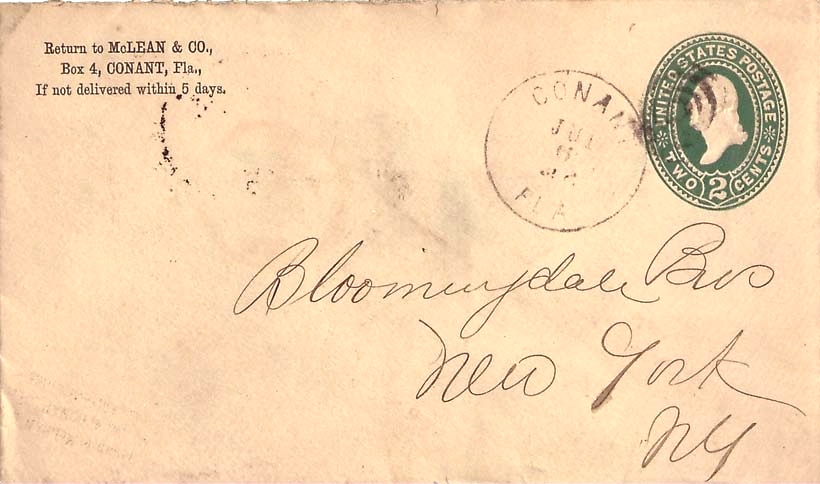 Return to McLEAN & CO.,
Box 4, CONANT, Fla.,
If not delivered within 5 days.
UNITED STATES POSTAGE
TWO 2 CENTS
CONANT
JUL
FLA
Bloomingdale Bros
New York
NY